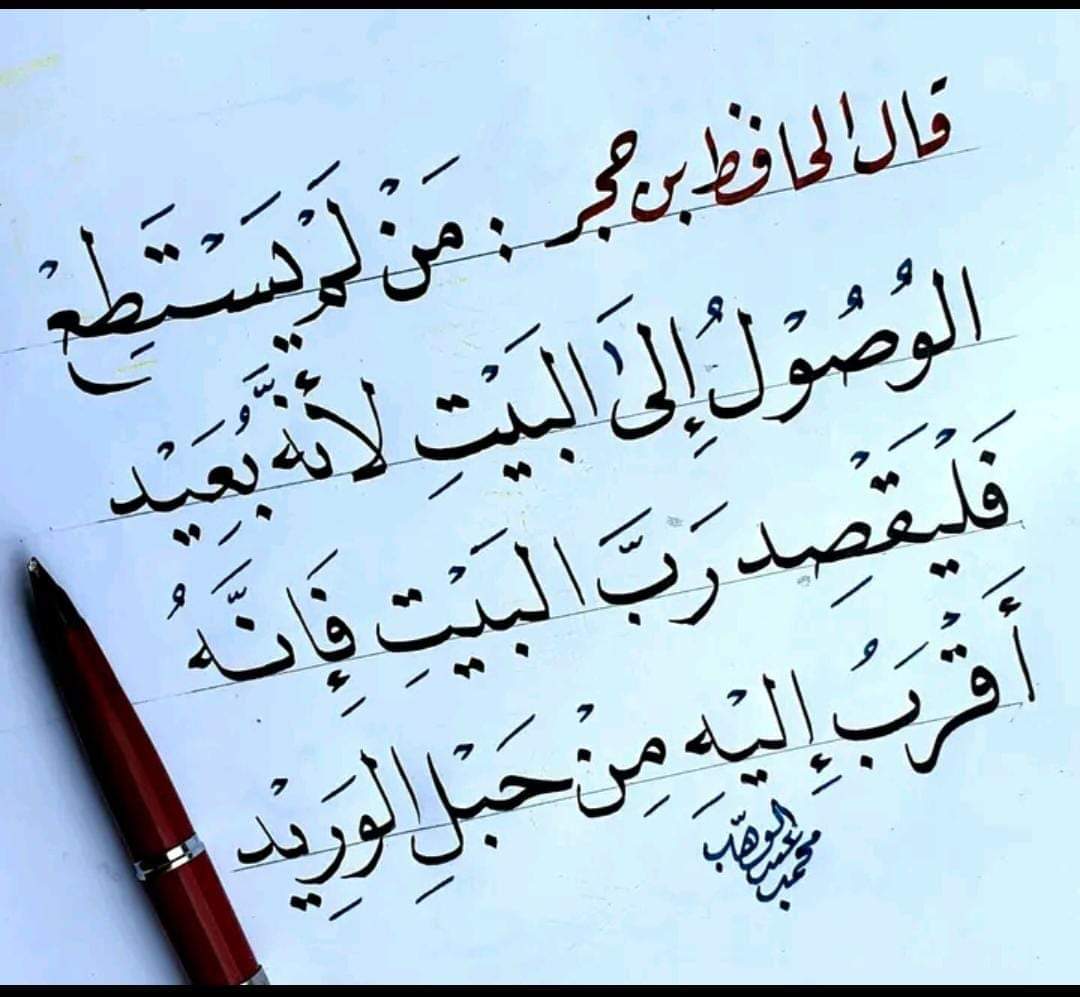 قال الحافظ بن حجر : مَنْ لَمْ يَسْتَطِعْ
الوُصُوْلُ إِلىَ البَيْتِ لأنَّهُ بَعِيْد
فَلْيَقْصِد رَبَّ البَيْتِ فَإِنَّهُ
أَقْرَبُ إِليْهِ مِنْ حَبْلِ الوَرِيْد
محمد عبد الوهاب